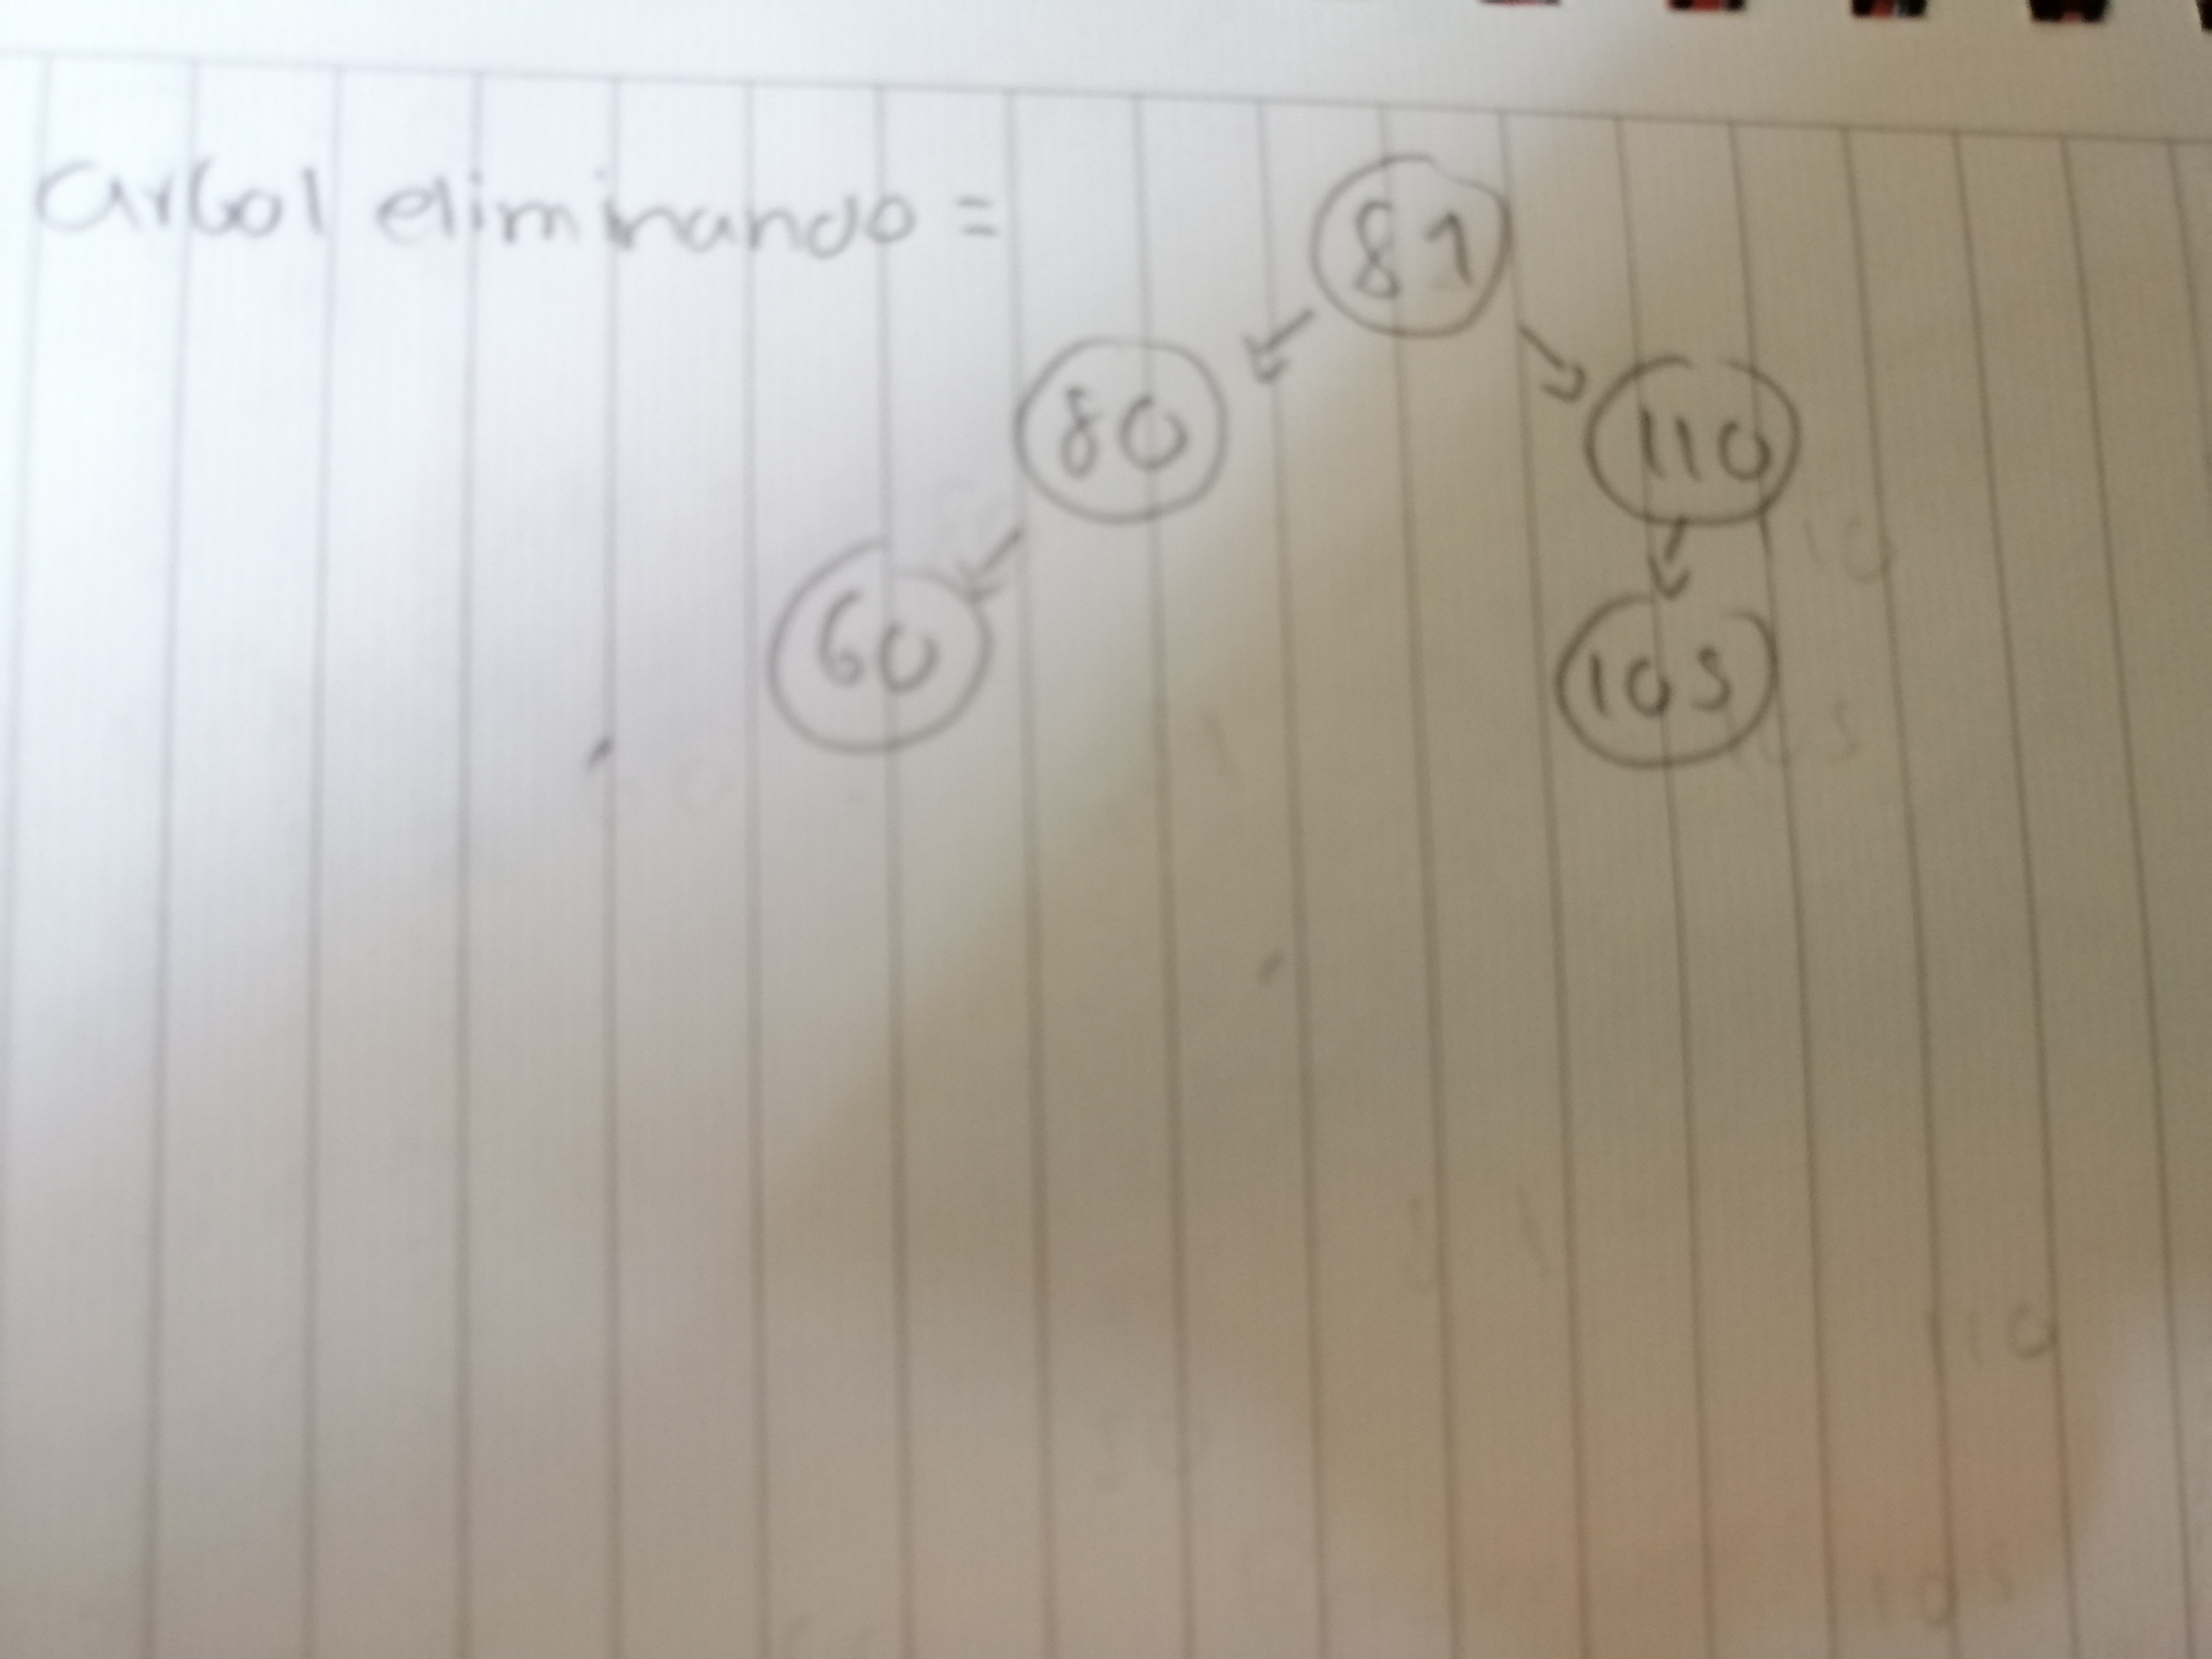 arbol eliminando =
81
80
110
60
105